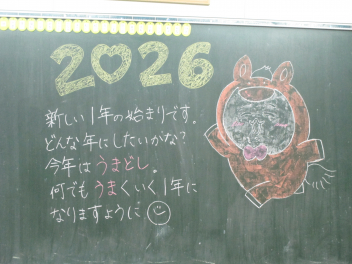 2026
新しい1年の始まりです。
どんな年にしたいかな?
今年はうまどし。
何でもうまくいく1年に
なりますように